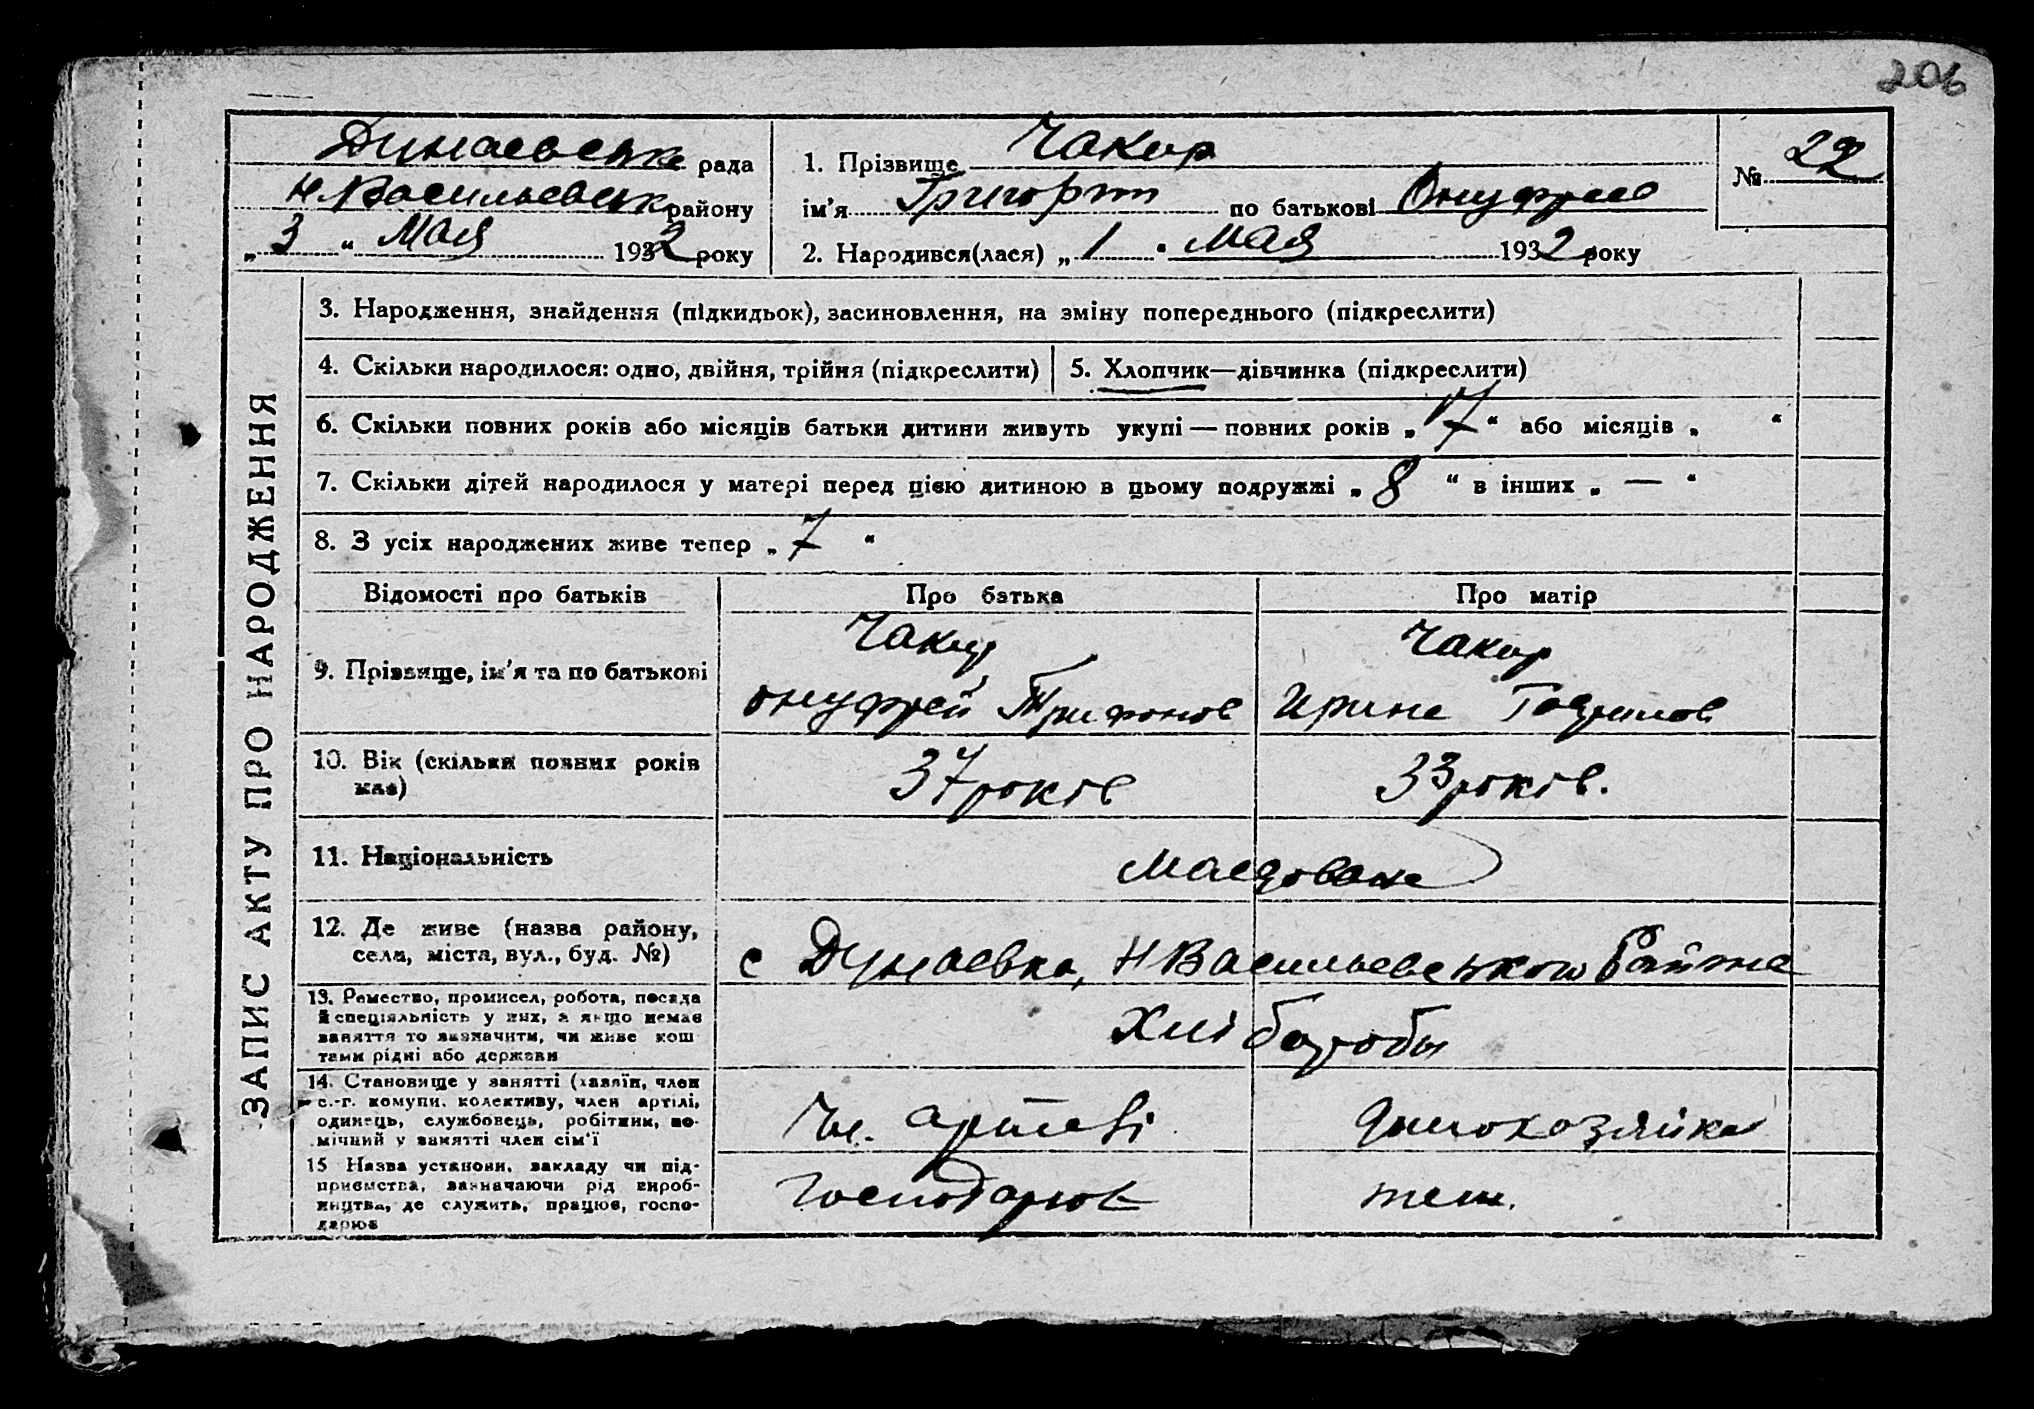 206
Дунаевська рада
Н.Васильевськ району
„ 3 “ Мая 1932 року
1. Прізвище Чакир
ім'я Григорій по батькові Онуфрее
2. Народився(лася) „ 1 “ Мая 1932 року
№ 22
ЗАПИС АКТУ ПРО НАРОДЖЕННЯ
3. Народження, знайдення (підкидьок), засиновлення, на зміну попереднього (підкреслити)
4. Скільки народилося: одно, двійня, трійня (підкреслити)
5. Хлопчик—дівчинка (підкреслити)
6. Скільки повних років або місяців батьки дитини живуть укупі — повних років „ 17 “ або місяців „ “
7. Скільки дітей народилося у матері перед цією дитиною в цьому подружжі „ 8 “ в інших „ — “
8. З усіх народжених живе тепер „ 7 “
Відомості про батьків
Про батька
Про матір
9. Прізвище, ім'я та по батькові
Чакир
онуфрей Трифонов
Чакир
Ирина Гаврилов
10. Вік (скільки повних років
має)
37 років
33 років.
11. Національність
Малдоване
12. Де живе (назва району,
села, міста, вул., буд. №)
с Дунаевка, Н Васильевського Району
13. Ремество, промисел, робота, посада
й спеціяльність у них, а якщо немає
заняття то зазначити, чи живе кош
тами рідні або держави
Хліборобы
14. Становище у занятті (хазяїн, член
с.-г. комуни, колективу, член артілі,
одинець, службовець, робітник, по-
мічний у занятті член сім'ї
Чл. артелі
домохозяйка
15 Назва установи, закладу чи під-
приємства, зазначаючи рід вироб-
ництва, де служить, працює, госпо-
дарює
Господарюв